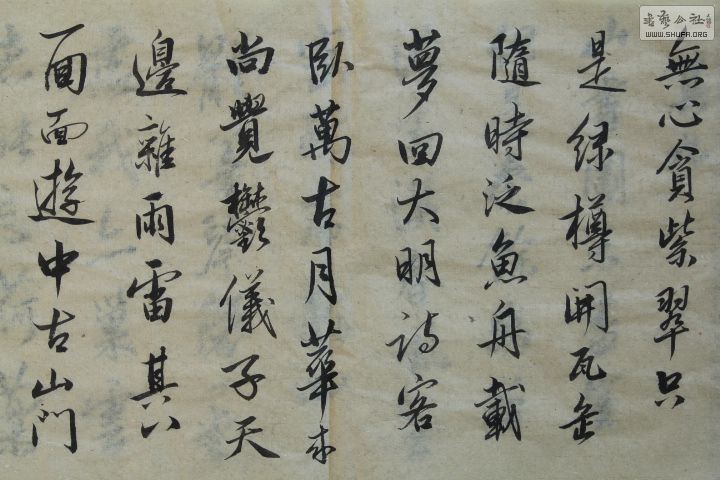 無心貪紫翠只
是緑樽開瓦缶
隨時泛魚舟載
夢回大明詩客
卧萬古月華來
尚覺欝儀子天
邊雜雨雷其八
面面遊中古山門
書藝公社
WWW.SHUFA.ORG